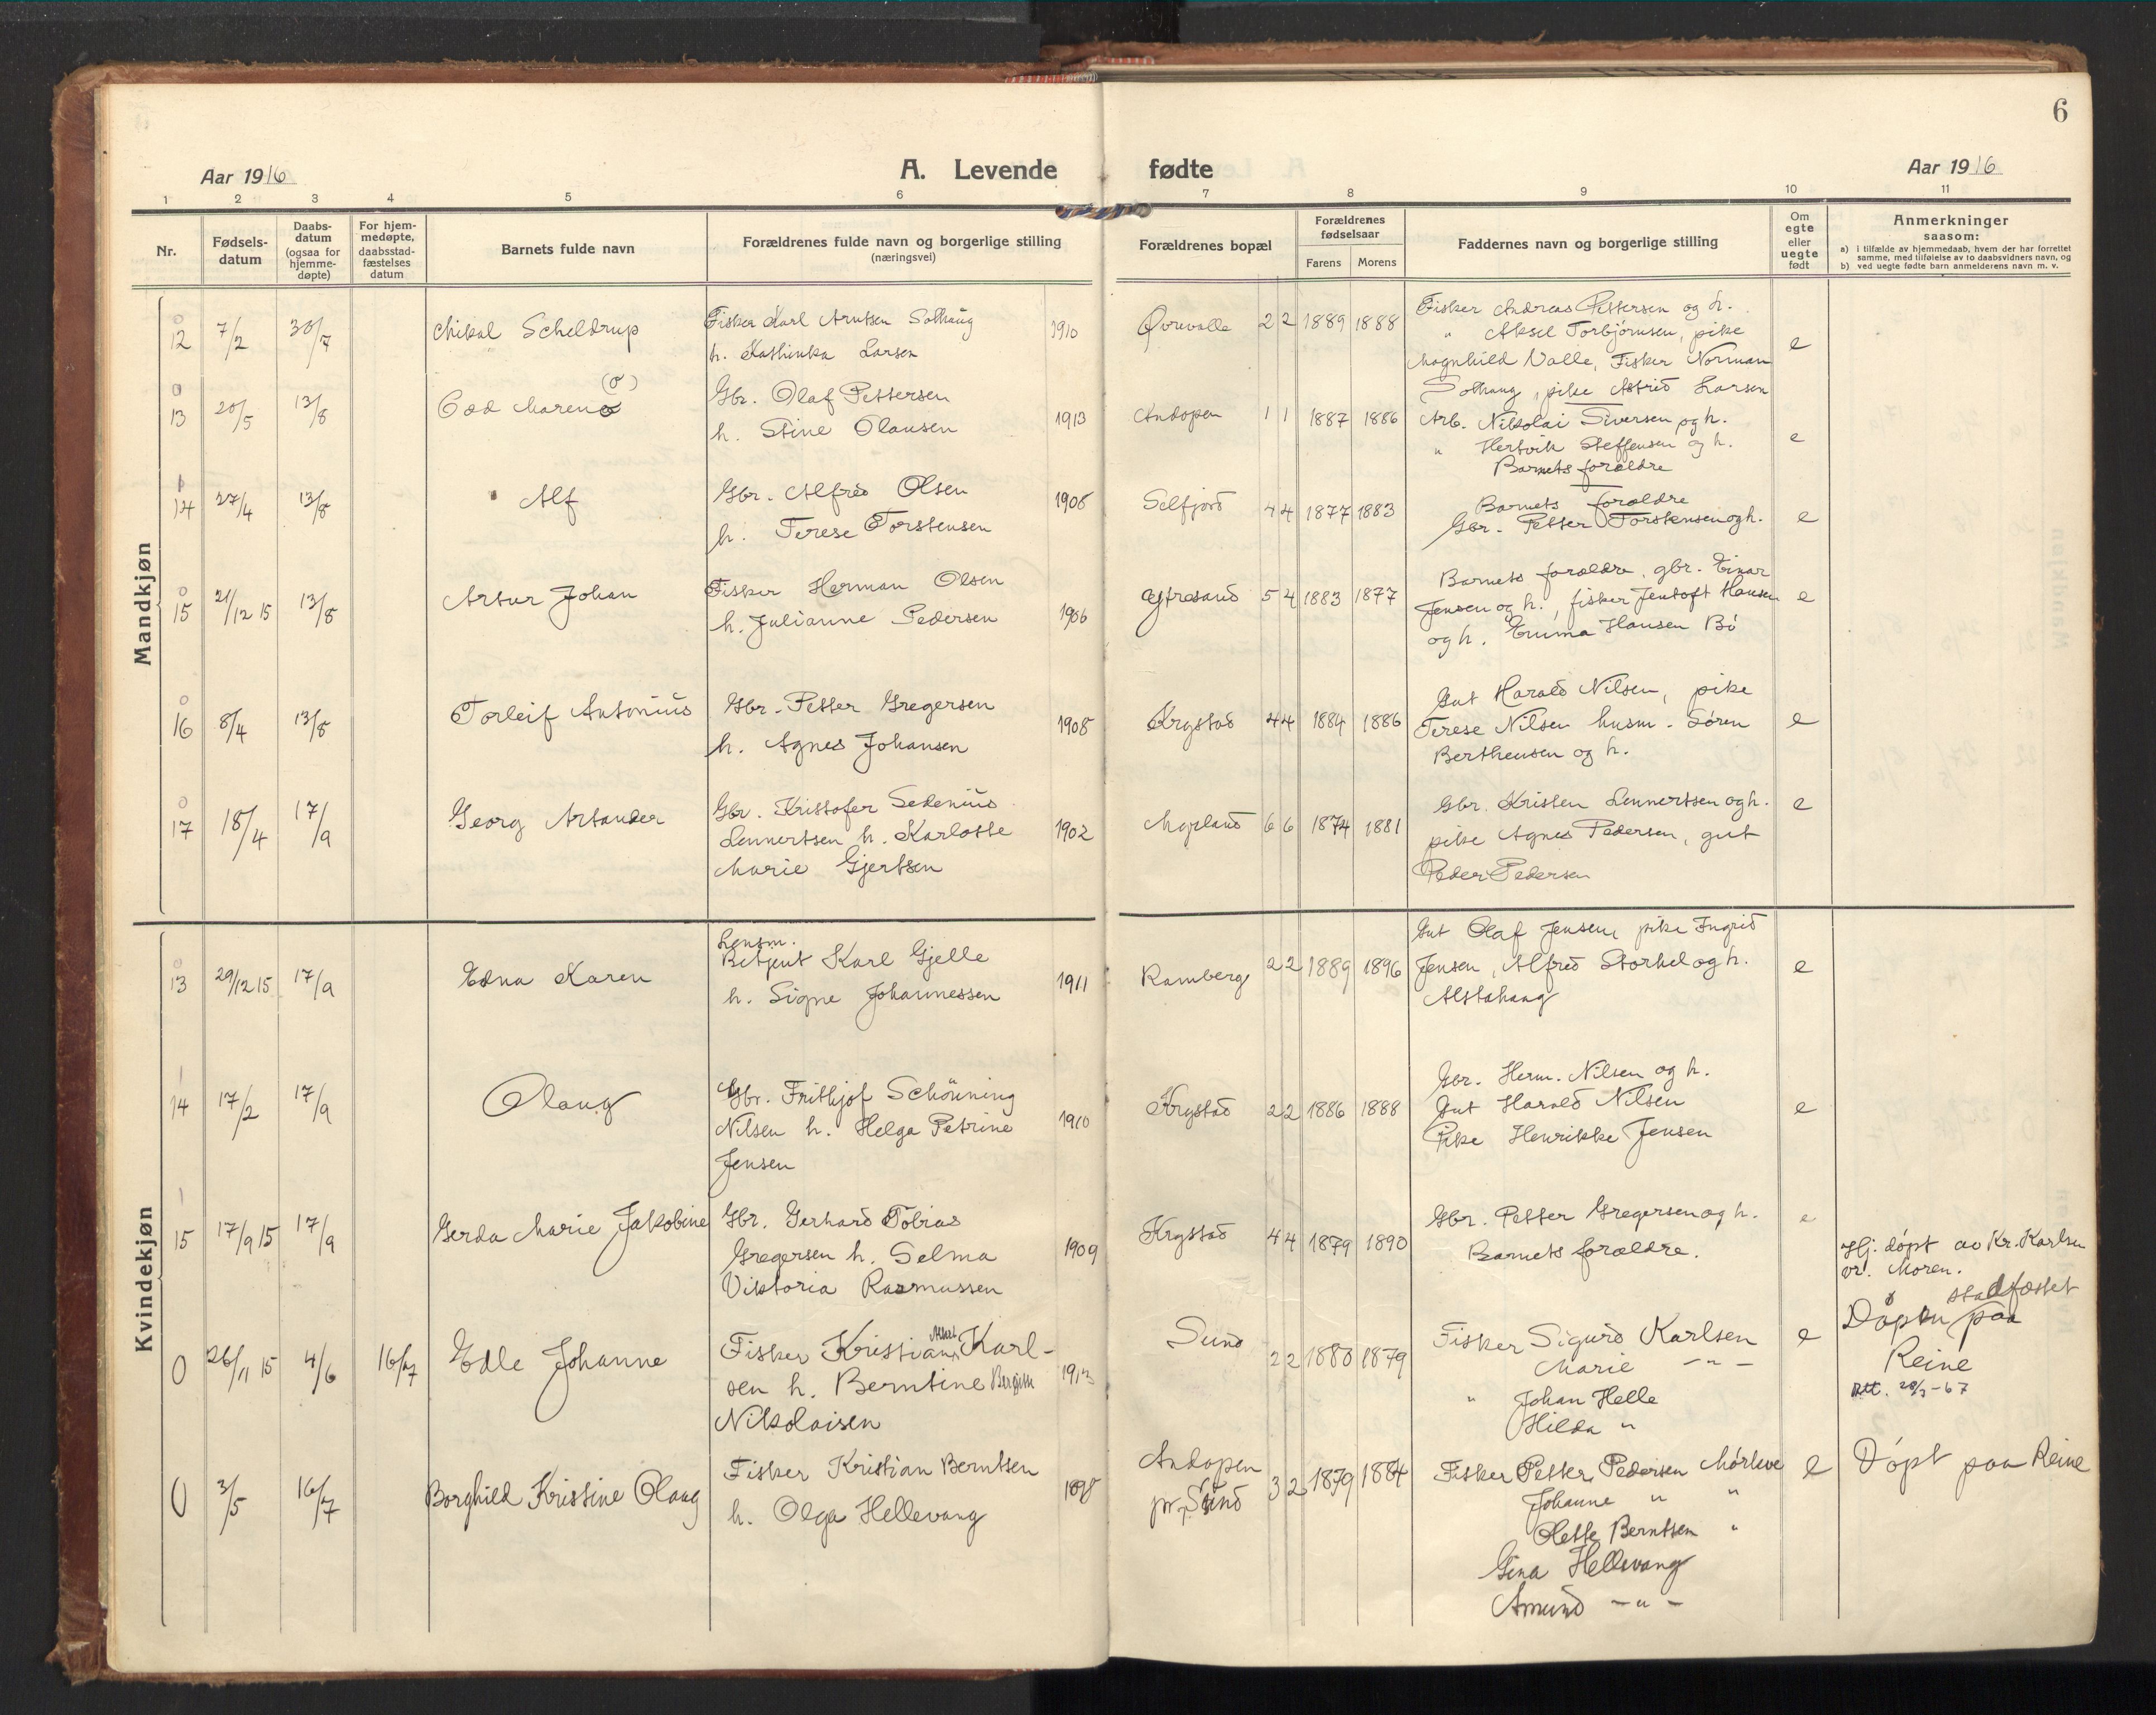 6
Aar 1916
A. Levende fødte
Aar 1916
1 2 3 4 5 6 7 8 9 10 11
Nr.
Fødsels-
datum
Daabs-
datum
(ogsaa for
hjemme-
døpte)
For hjem-
medøpte,
daabsstad-
fæstelses
datum
Barnets fulde navn
Forældrenes fulde navn og borgerlige stilling
(næringsvei)
Forældrenes bopæl
Forældrenes
fødselsaar
Farens Morens
Faddernes navn og borgerlige stilling
Om
egte
eller
uegte
født
Anmerkninger
saasom:
a) i tilfælde av hjemmedaab, hvem der har forrettet
samme, med tilføielse av to daabsvidners navn, og
b) ved uegte fødte barn anmelderens navn m. v.
Mandkjøn
12 7/2 30/7 Mikal Scheldrup
Fisker Karl Arntsen Solhaug
h. Kathinka Larsen
1910 Øvrevalle 2 2 1889 1888
Fisker Andreas Pettersen og h.
" Aksel Torbjørnsen, pike
Magnhild Valle, Fisker Norman
Solhaug, pike Astrid Larsen
e
13 20/5 13/8 (o)
Gbr. Olaf Pettersen
h. Stine Olausen
1913 Andopen 1 1 1887 1886
Arb. Nikolai Siversen og h.
" Hertvik Steffensen og h.
Barnets forældre
e
14 27/4 13/8 Alf
Gbr. Alfred Olsen
h. Terese Torstensen
Selfjord 4 4 1877 1883
Barnets forældre
Gbr. Petter Torstensen og h.
e
15 21/12 15 13/8 Artur Johan
Fisker Herman Olsen
h. Julianne Pedersen
1906 Ytresand 5 4 1883 1877
Barnets forældre, gbr. Einar
Jensen og h., fisker Jentoft Hansen
og h. Emma Hansen Bø
e
16 8/4 13/8 Torleif Antonius
Gbr. Petter Gregersen
h. Agnes Johansen
1908 Krystad 4 4 1884 1886
Gut Harald Nilsen, pike
Terese Nilsen husm. Søren
Berthensen og h.
e
17 18/4 17/9 Georg Artander
Gbr. Kristofer Sedenius
Lennertsen h. Karlotte
Marie Gjertsen
1902 6 6 1874 1881
Gbr. Kristen Lennertsen og h.
pike Agnes Pedersen, gut
Peder Pedersen
e
Kvindekjøn
13 29/12 15 17/9 Edna Karen
Lensm.
Betjent Karl Gjelle
h. Signe Johannessen
1911 Ramberg 2 2 1889 1896
Gut Olaf Jensen, pike Ingrid
Jensen, Alfred Storkel og h.
Alstahaug
e
14 17/2 17/9 Olaug
Gbr. Frithjof Schönning
Nilsen h. Helga Petrine
Jensen
1910 Krystad 2 2 1886 1888
Gbr. Herm. Nilsen og h.
Gut Harald Nilsen
Pike Henrikke Jensen
e
15 17/9 15 17/9 Gerda Marie Jakobine
Gbr. Gerhard Tobias
Gregersen h. Selma
Viktoria Rasmussen
1909 Krystad 4 4 1879 1890
Gbr. Petter Gregersen og h.
Barnets forældre.
e
Hj. døpt av Kr. Karlsen
Moren.
0 26/11 15 4/6 16/7 Edle Johanne
Fisker Kristian Albert Karl-
sen h. Berntine Bergitte
Nikolaisen
Sund 2 2 1880 1879
Fisker Sigurd Karlsen
Marie -"-
" Johan Helle
Hilda "
e
stadfæstet
Døpen paa
Reine
0 3/5 16/7 Borghild Kristine Olaug
Fisker Kristian Berntsen
h. Olga Hellevang
Andopen
pr. Sund
3 2 1879 1884
Fisker Petter Pedersen Mørkve
Johanne " "
Olette Berntsen "
Gina Hellevang
Amund -"-
e
Døpt paa Reine